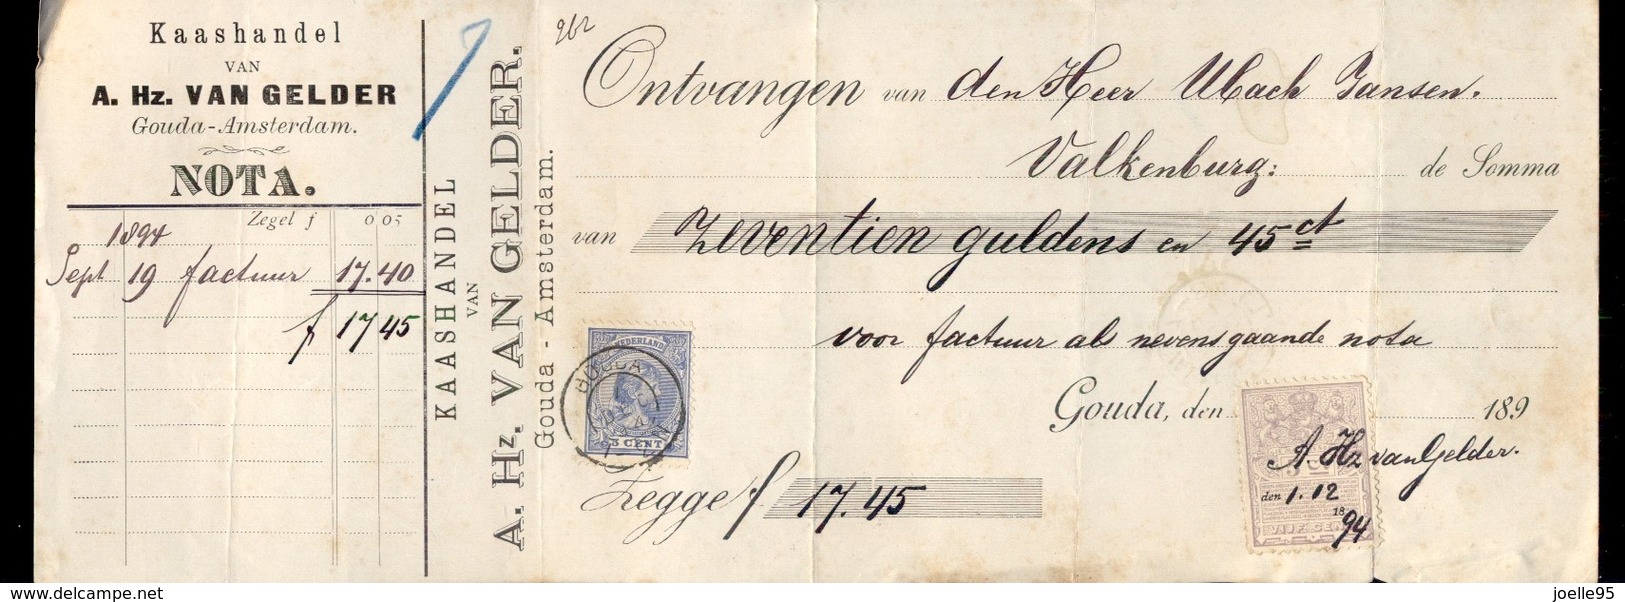 Kaashandel
VAN
A. Hz. VAN GELDER
Gouda-Amsterdam.
NOTA.
Zegel f 0 05
1894
Sept 19 factuur 17.40
f 17 45
KAASHANDEL
VAN
A. Hz. VAN GELDER.
Gouda - Amsterdam.
262
Ontvangen van den Heer Ubach Jansen.
Valkenburg: de Somma
van Zeventien guldens en 45 ct
voor factuur als nevensgaande nota
Gouda, den 189
NEDERLAND
GOUDA
5 CENT
A. Hz van Gelder.
den 1.12
1894
VIJF CENT
Zegge f 17.45
© www.delcampe.net
joelle95